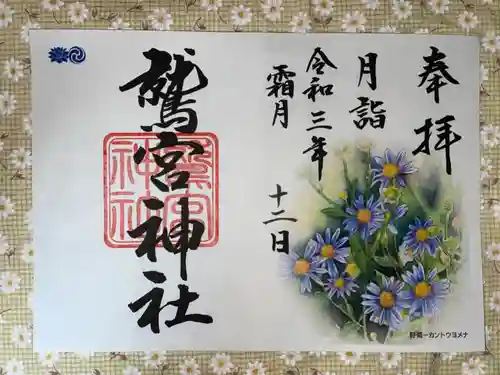 奉拝
月詣
令和三年
霜月
十二日
鷲宮神社
鷲宮
神社
野菊ーカントウヨメナ